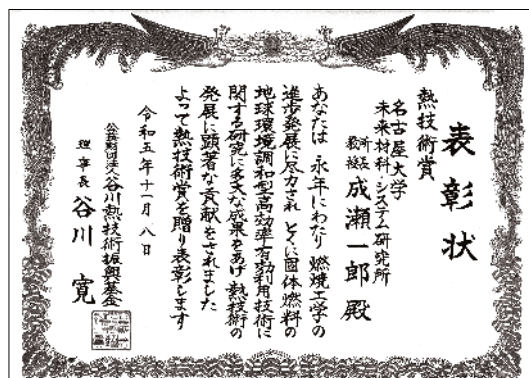 表彰状
熱技術賞
名古屋大学
未来材料・システム研究所
所長
教授 成瀬一郎殿
あなたは永年にわたり燃焼工学の
進歩発展に尽力されとくに固体燃料の
地球環境調和型高効率有効利用技術に
関する研究に多大な成果をあげ熱技術の
発展に顕著な貢献をされました
よって熱技術賞を贈り表彰します
令和五年十一月八日
公益財団法人谷川熱技術振興基金
理事長 谷川寛